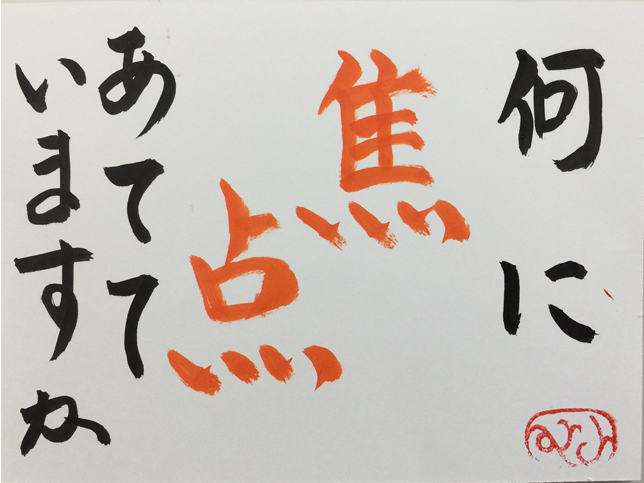 何に
焦点
あてて
いますか